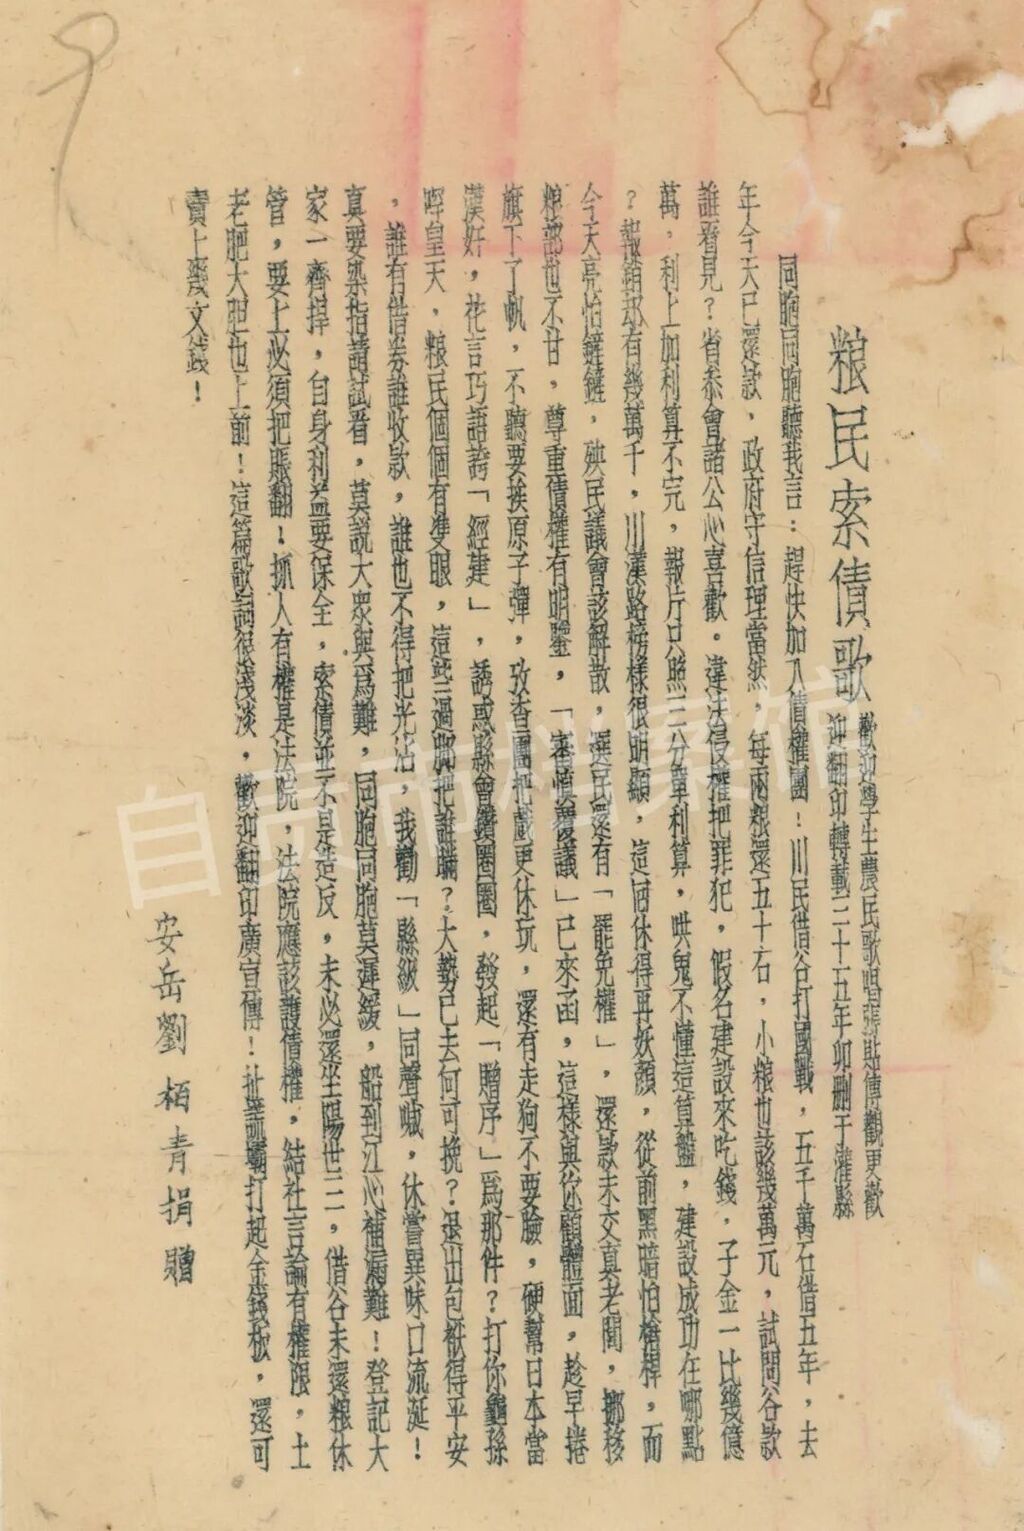 粮民索債歌
歡迎學生農民歌唱張貼傳觀更歡
迎翻印轉載三十五年卯删于濰縣
同胞同胞聽我言：趕快加入債權團！川民借谷打國戰，五千萬石借五年，去
年今天已還款，政府守信理當然，每兩粮還五十石，小粮也該幾萬元，試問谷款
誰看見？省叅會諸公心喜歡。違法侵權把罪犯，假名建設來吃錢，子金一比幾億
萬，利上加利算不完，報斤只照三分單利算，哄鬼不懂這算盤，建設成功在哪點
？報銷却有幾萬千，川漢路榜樣很明顯，這回休得再妖顏，從前黑暗怕槍桿，而
今天亮怕鏟鏟，殃民議會該解散，選民還有「罷免權」，還款未交真老閻，挪移
粮認也不甘，尊重債權有明鑒，「審慎覆議」已來函，這樣與你顧體面，趁早捲
旗下了帆，不聽要挨原子彈，攷查團把戲更休玩，還有走狗不要臉，硬幫日本當
漢奸，花言巧語誇「經建」，誘惑縣會鑽圈圈，發起「贈序」為那件？打你龜孫
哻皇天，粮民個個有雙眼，這些過脚把誰瞞？大勢已去何可挽？退出包袱得平安
，誰有借券誰收款，誰也不得把光沾，我勸「縣級」同聲喊，休嘗異味口流涎！
真要染指請試看，莫說大衆與爲難，同胞同胞莫遲緩，船到江心補漏難！登記大
家一齊捍，自身利益要保全，索債並不是造反，未必還坐陽世三，借谷未還粮休
管，要上必須把賬翻！抓人有權是法院，法院應該護債權，結社言論有權限，土
老肥大胆也上前！這篇歌詞很淺淡，歡迎翻印廣宣傳！扯謊壩打起金錢板，還可
賣上幾文錢！
安岳劉栢青捐贈
自貢市檔案館